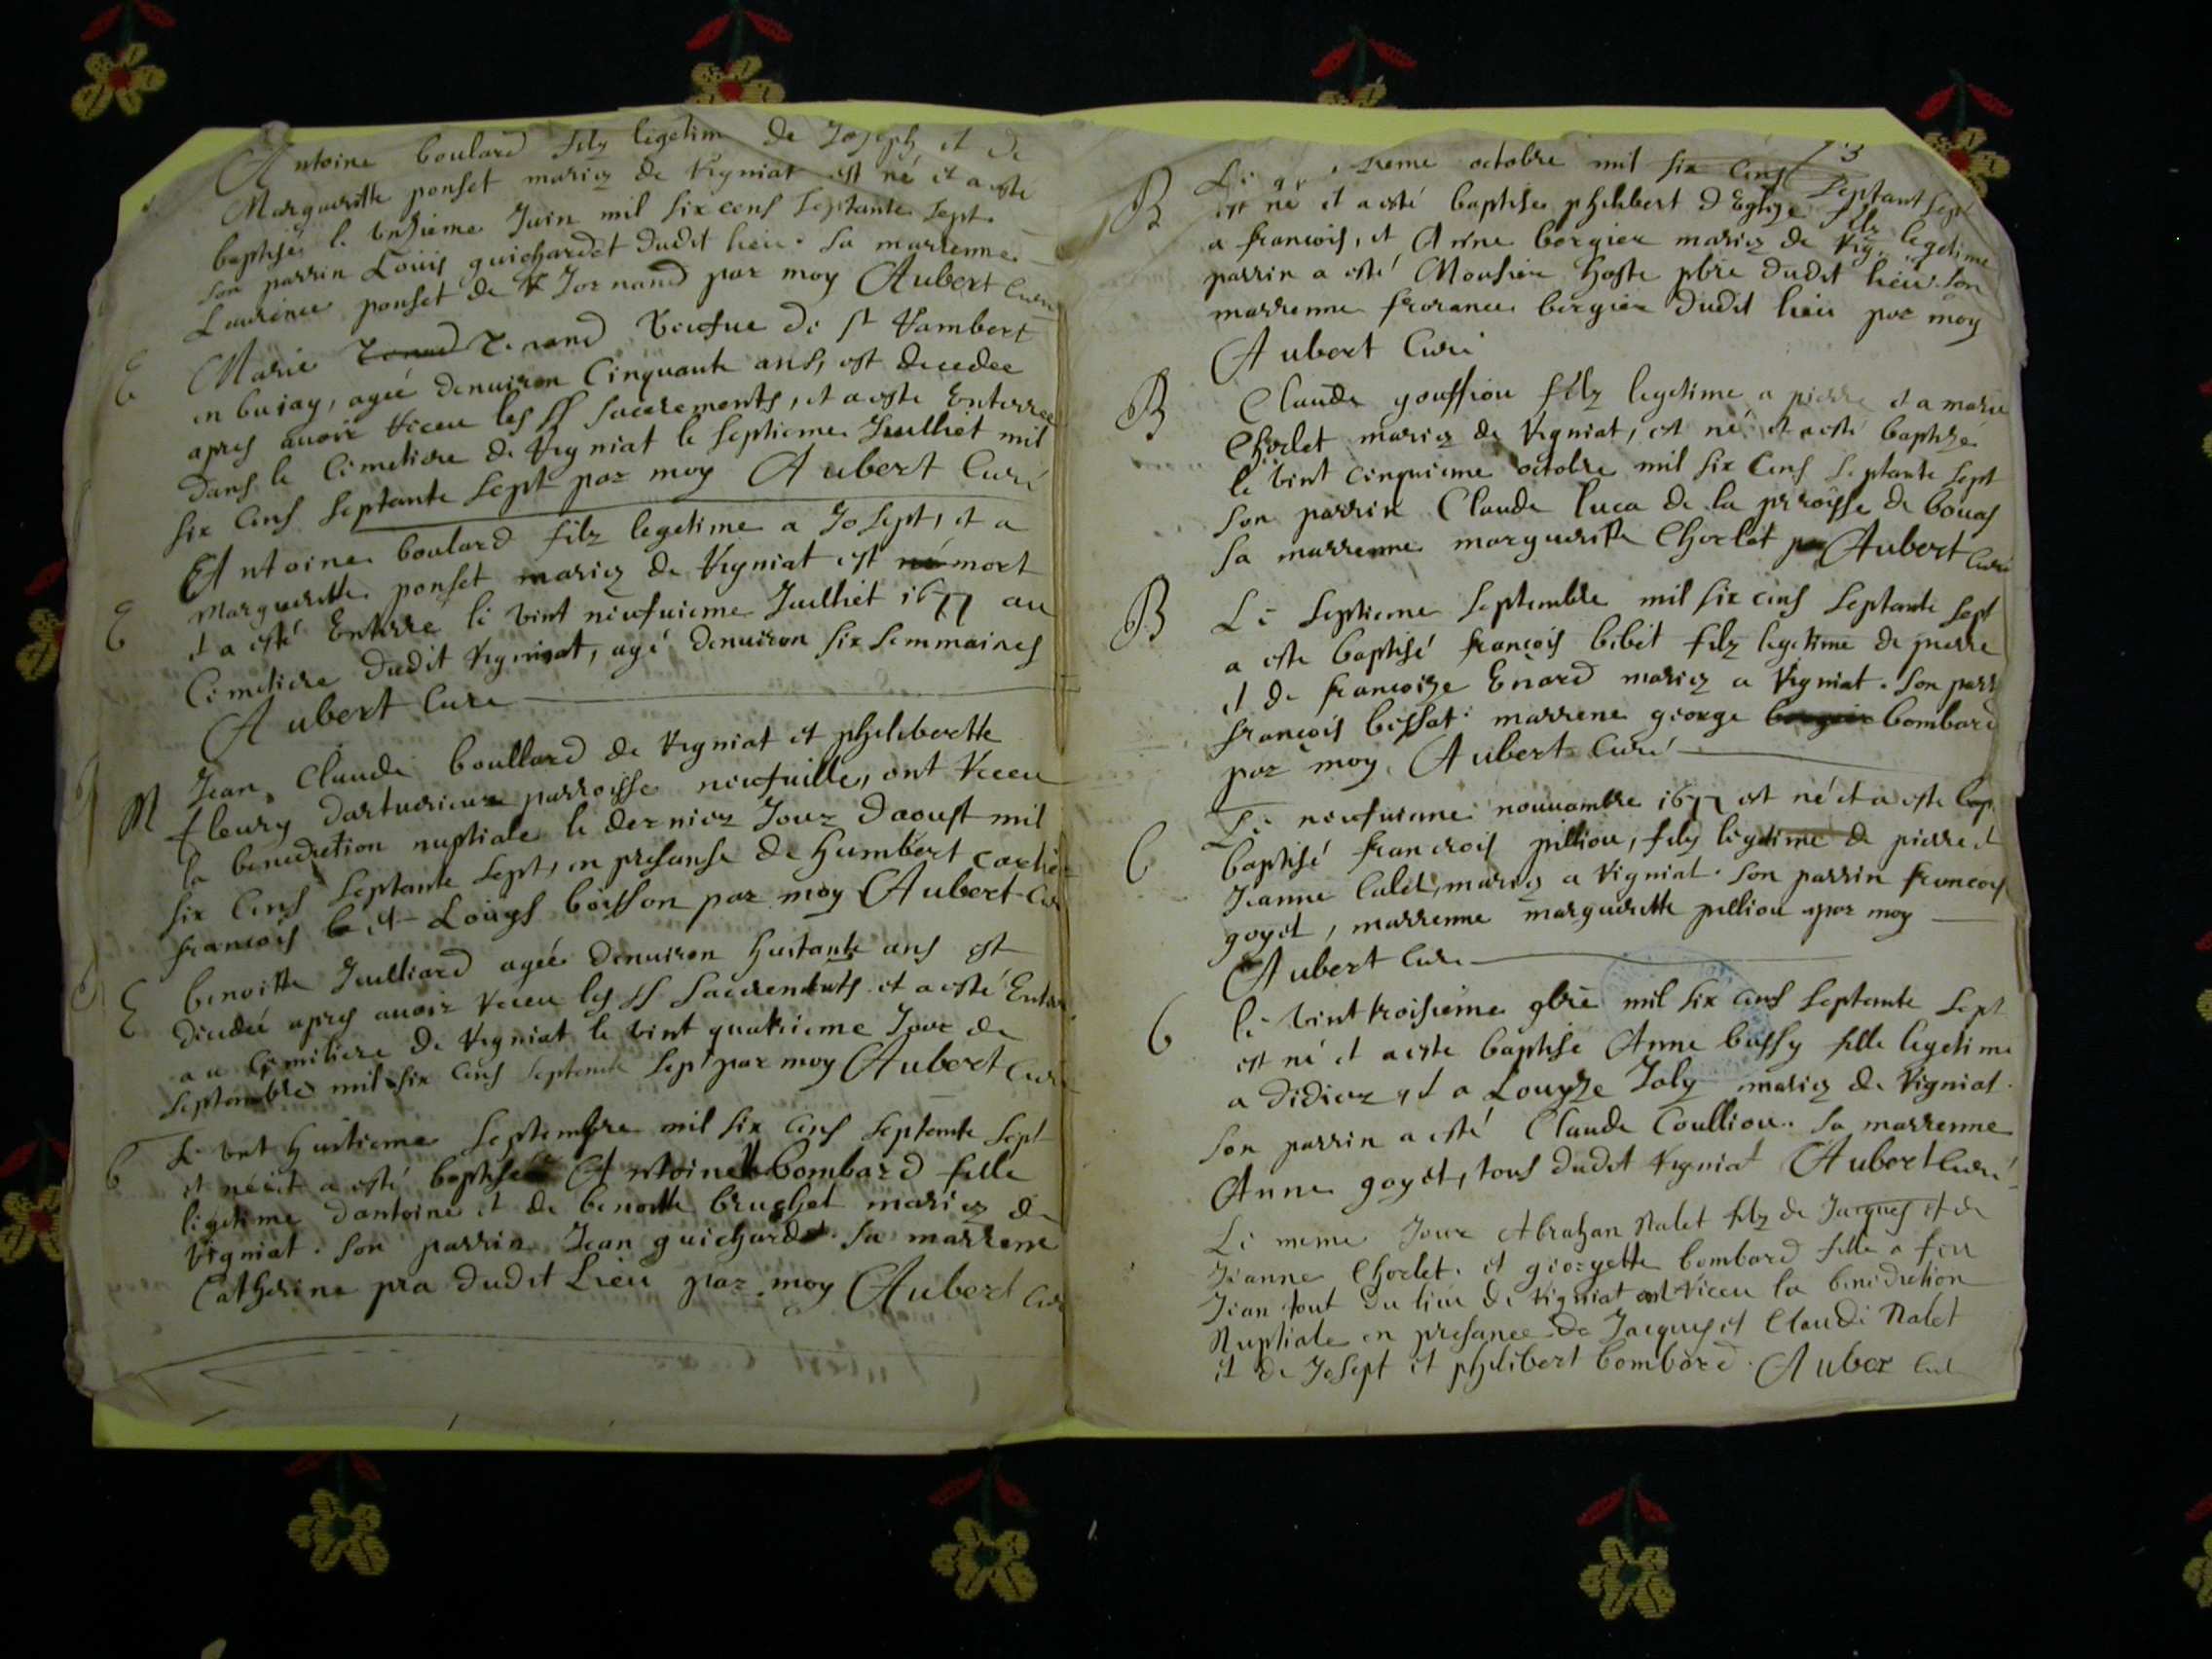 Antoine boulard filz legetim de Joseph et de
Margueritte ponset mariez de Vrgniat est né et a esté
baptisé le Unzieme Juin mil six cens septante sept.
son parrin Louis guichardet dudit lieu. Sa marrenne
Laurence ponset de Jornand par moy Aubert Curé
E
Marie Tenand Veufue de st Vambert
en bujay, ageé denuiron Cinquante ans, est decedee
apres auoir Receu les SS sacrements, et a esté Enterree
dans le Cimetiere de Vrgniat le septieme Juilliet mil
six Cens septante sept par moy Aubert Curé
E
Antoine boulard filz legetime a Josept, et a
Margueritte ponset mariez de Vrgniat est né mort
et a esté Enterre le vint neufuieme Juilliet 1677 au
Cimetiere dudit Vrgniat, agé denuiron six semmaines
Aubert Cure
M
Jean Claude boullard de Vrgniat et pheliberthe
fleury darturieux parroisse neufuille, ont Receu
la benediction nuptiale le dernier Jour daoust mil
six Cens septante sept, en presanse de humbert Cartier
francois b et Louys boisson par moy Aubert Cu
E
benoitte Juilliard ageé denuiron huitante ans est
decedeé apres auoir Receu les SS sacrements et a esté Enter
au Cimetiere de Vrgniat le vint quatrieme Jour de
septembre mil six Cens septente sept par moy Aubert Cur
b
Le vint huitieme septembre mil six Cens septente sept
et néé et a esté baptisé Antoinette bombard fille
legetime dantoine et de benoitte bruchet mariez de
Vrgniat. son parrin Jean guichardet. Sa marrene
Catherine pra dudit Lieu par moy Aubert Cur
B
Le octobre mil six Cens septant sept
est né et a esté baptisé phelibert d Eglize filz legetime
a francois, et Anne bergier mariez de Vrg. son
parrin a esté Monsieur hoste pbre dudit lieu. son
marrenne bergier dudit lieu par moy
Aubert Curé
B
Claude gouffiou filz legetime a pierre et a marie
Chorlet mariez de Vrgniat, est né et a esté baptizé
le vint cinquieme octobre mil six Cens septante sept
son parrin Claude luca de la perroisse de bouas
sa marrenne margueritte Chorlet par Aubert Curé
B
Le septieme septembre mil six cens septante sept
a esté baptisé francois bebet filz legetime de pierre
et de francoize Enard mariez a Vrgniat. son parr
francois bissat. marrene george bombard
par moy Aubert Curé
b
Le neufuieme nouuambre 1677 est né et a esté bap
baptisé francrois pilliou, filz legetime de pierre et
Jeanne Calet, mariez a Vrgniat. son parrin francois
goyet, marrenne margueritte pilliou par moy
Aubert Cure
b
le vint troisieme 9bre mil six cens septante sept
est né et a esté baptisé Anne bussy fille legetime
a didier, et a Louyze Joly mariez de Vigniat.
Son parrin a esté Claude Coulliou. Sa marrenne
Anne goyet, tous dudit Vrgniat Aubert Curé
Le meme Jour Abrahan Nalet filz de Jacques et de
Jeanne Chorlet. et georgette bombard fille a feu
Jean tout du lieu de Vrgniat ont Receu la benediction
Nuptiale en presance de Jacques et Claude Nalet
et de Josept et phelibert bombard. Auber Cur